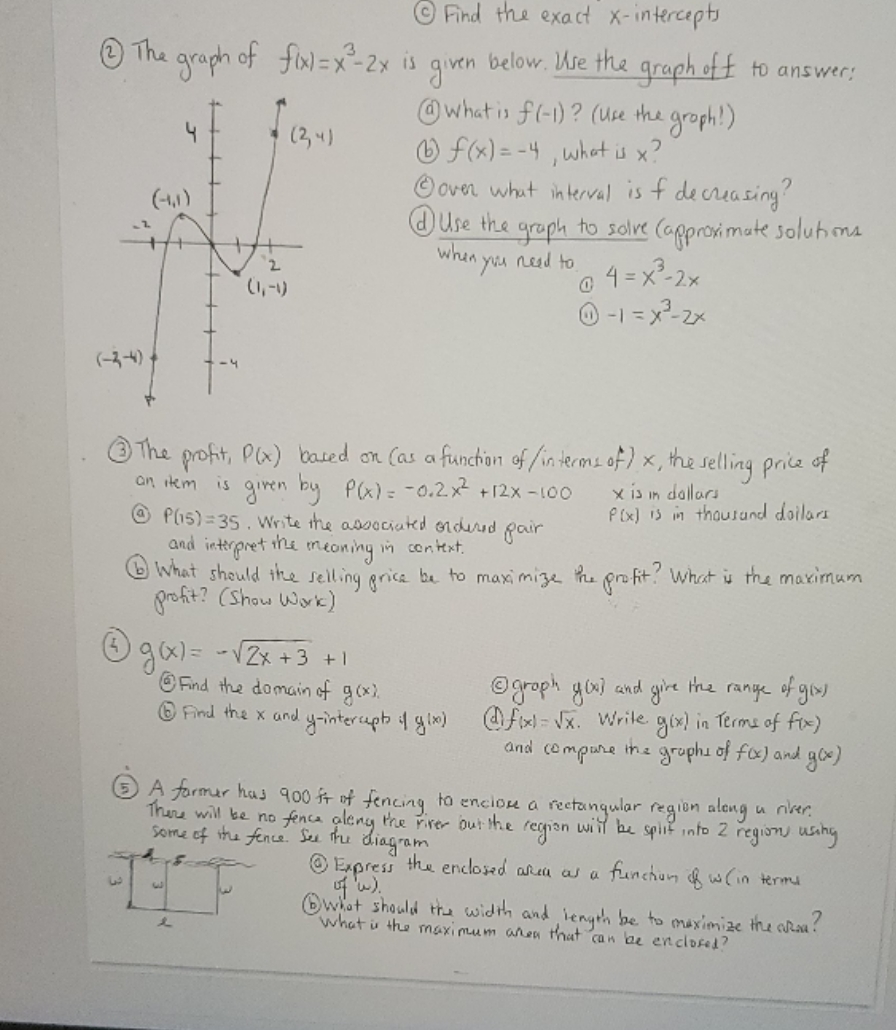 ⓒ Find the exact x-intercepts
② The graph of f(x)=x³-2x is given below. Use the graph of f to answer:
ⓐ What is f(-1)? (Use the graph!)
4
(2,4)
ⓑ f(x) = -4, what is x?
ⓒ over what interval is f decreasing?
(-1,1)
ⓓ Use the graph to solve (approximate solutions
-2
when you need to
2
ⓘ 4 = x³-2x
(1,-1)
ⓘⓘ -1 = x³-2x
(-2,-4)
-4
③ The profit, P(x) based on (as a function of/in terms of) x, the selling price of
an item is given by P(x) = -0.2x² +12x -100 x is in dollars
P(x) is in thousand dollars
ⓐ P(15)=35. Write the associated ordered pair
and interpret the meaning in context.
ⓑ What should the selling price be to maximize the profit? What is the maximum
profit? (Show Work)
④ g(x) = -√(2x+3) +1
ⓐ Find the domain of g(x).
ⓒ graph g(x) and give the range of g(x)
ⓑ Find the x and y-intercepts of g(x)
ⓓ f(x) = √x. Write g(x) in Terms of f(x)
and compare the graphs of f(x) and g(x)
⑤ A farmer has 900 ft of fencing to enclose a rectangular region along a river.
There will be no fence along the river but the region will be split into 2 regions using
some of the fence. See the diagram
ⓐ Express the enclosed area as a function of w (in terms
of w).
w w w
l
ⓑ What should the width and length be to maximize the area?
What is the maximum area that can be enclosed?